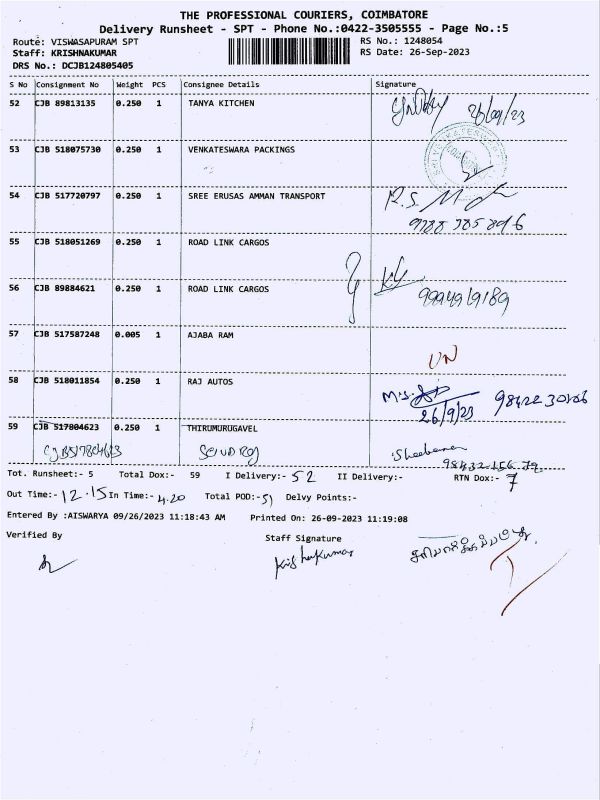 THE PROFESSIONAL COURIERS, COIMBATORE
Delivery Runsheet - SPT - Phone No.:0422-3505555 - Page No.:5
Route: VISWASAPURAM SPT RS No.: 1248054
Staff: KRISHNAKUMAR RS Date: 26-Sep-2023
DRS No.: DCJB124805405
S No Consignment No Weight PCS Consignee Details Signature
52 CJB 89813135 0.250 1 TANYA KITCHEN 26/09/23
53 CJB 518075730 0.250 1 VENKATESWARA PACKINGS
54 CJB 517720797 0.250 1 SREE ERUSAS AMMAN TRANSPORT R.S.
9788 785 896
55 CJB 518051269 0.250 1 ROAD LINK CARGOS
56 CJB 89884621 0.250 1 ROAD LINK CARGOS
9994919189
57 CJB 517587248 0.005 1 AJABA RAM
UN
58 CJB 518011854 0.250 1 RAJ AUTOS M.S.
26/9/23
59 CJB 517804623 0.250 1 THIRUMURUGAVEL
CJB517804623
Tot. Runsheet:- 5 Total Dox:- 59 I Delivery:- 52 II Delivery:- RTN Dox:- 7
Out Time:- 12.15 In Time:- 4.20 Total POD:- 51 Delvy Points:-
Entered By :AISWARYA 09/26/2023 11:18:43 AM Printed On: 26-09-2023 11:19:08
Verified By Staff Signature
Krishnakumar